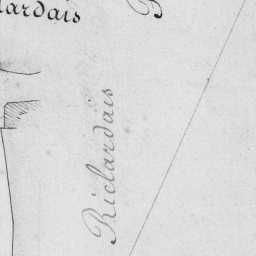 lardais
B
Riclardais